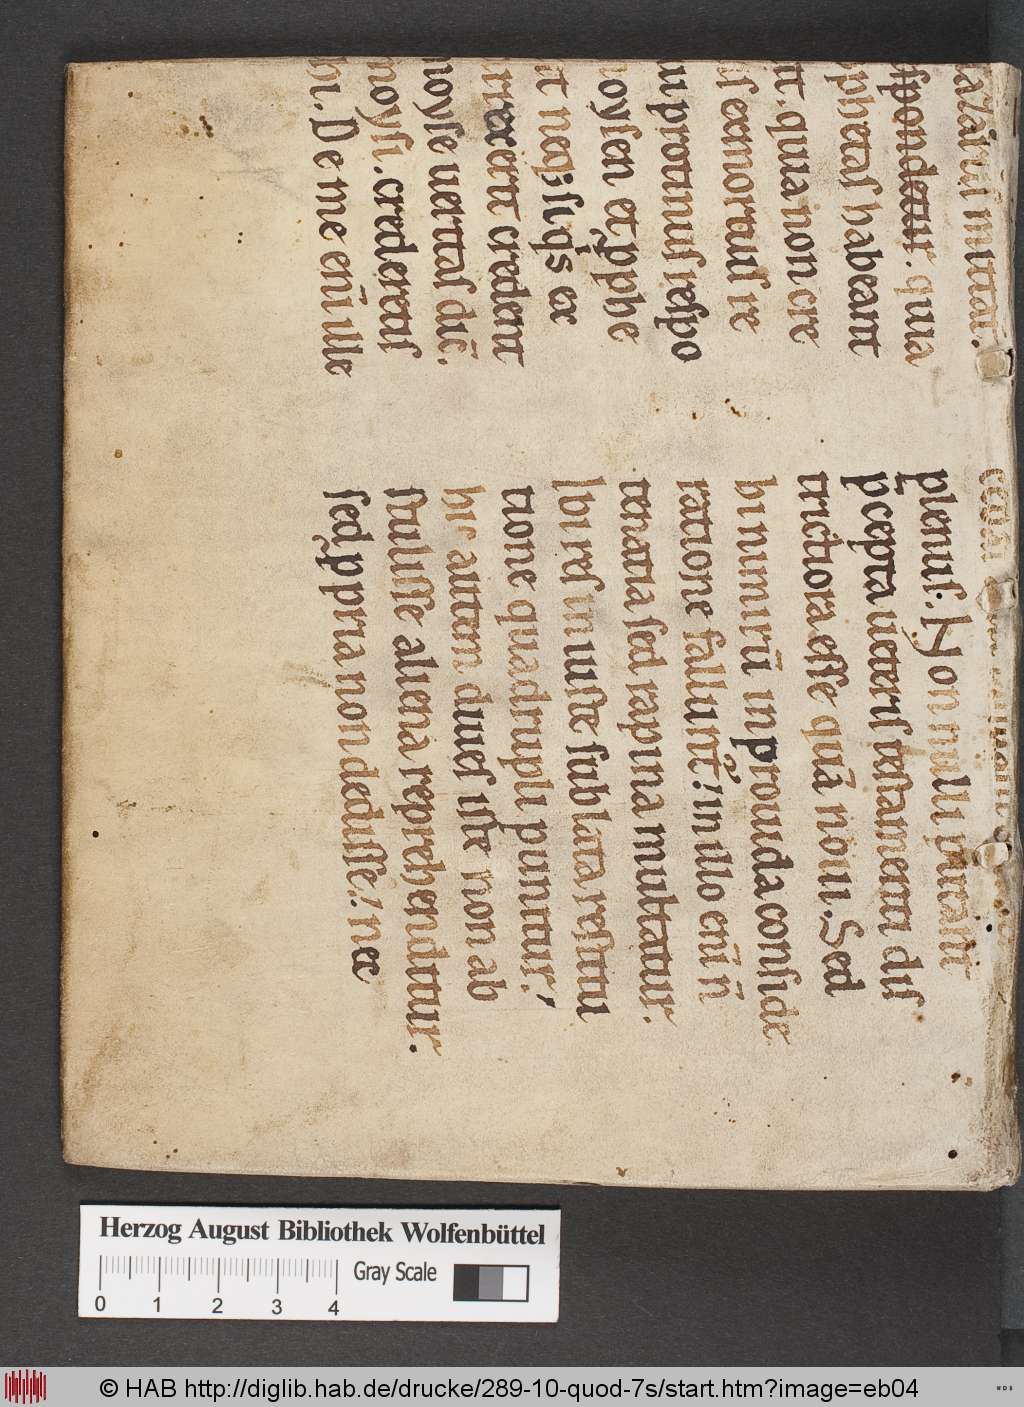 lazarus mittat.
spondetur. quia
phetas habeant
tt. quia non cre
is ex mortuis re
u protinus respo
oysen et ꝓphe
t neq; si qs ex
rrexerit credent
oyse ueritas dic̄.
moysi. crederetis
hi. De me enī ille
plenus. Nonnulli putant
pcepta ueteris testamenti dis
trictiora esse quā noui. Sed
hi nimirū inprouida conside
ratione fallunt! in illo enī n̄
tenatia sed rapina multatur.
Ibi res iniuste sublata restitu
tione quadrupli punitur!
hic autem diues iste non ab
stulisse aliena reprehenditur.
sed ꝓpria non dedisse! nec
Herzog August Bibliothek Wolfenbüttel
0 1 2 3 4 Gray Scale
© HAB http://diglib.hab.de/drucke/289-10-quod-7s/start.htm?image=eb04